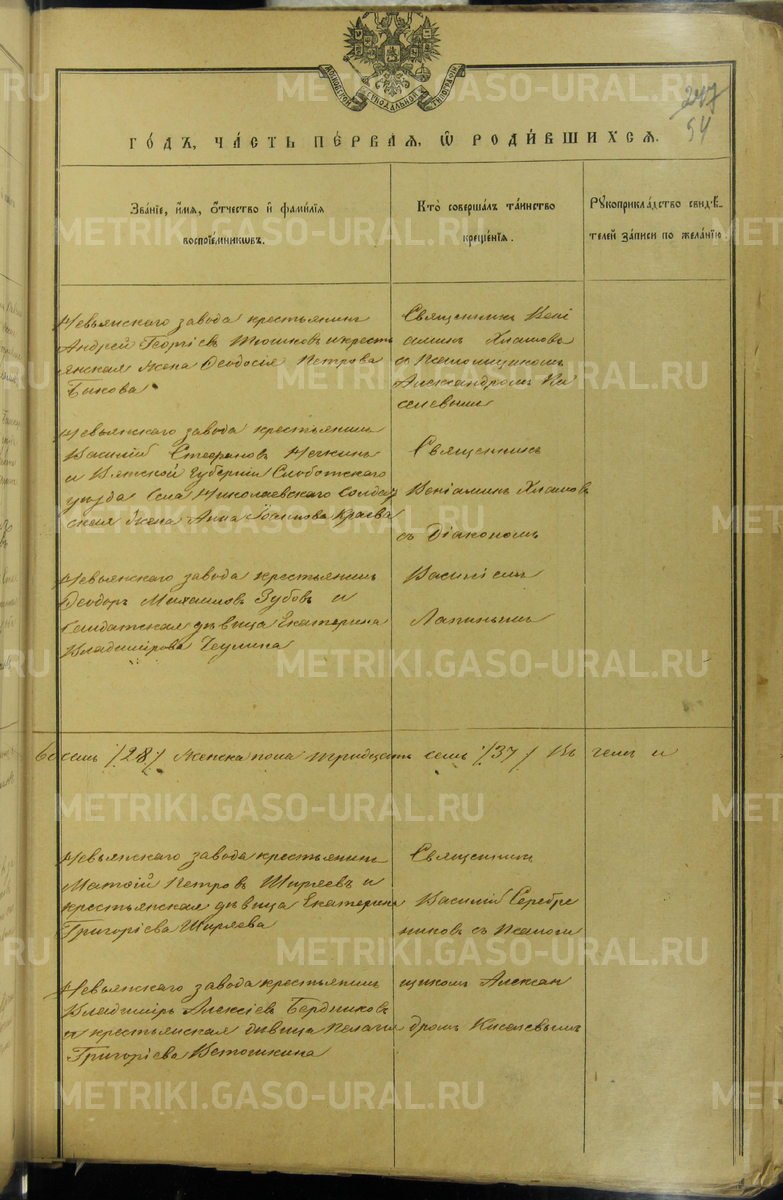 МОСКОВСКОЙ СѴНОДАЛЬНОЙ ТѴПОГРАФІИ
247
54
ГО́ДЪ, ЧА́СТЬ ПЕ́РВАЯ, Ѡ҆ РОДИ́ВШИХСЯ.
Зва́нїе, и҆́мѧ, ѻ҆́тчество и҆ фами́лїѧ
воспрїе́мникѡвъ.
Кто̀ соверша́лъ та́инство
креще́нїѧ.
Рꙋкоприкла́дство свидѣ́-
телей за́писи по жела́нїю.
Невьянскаго завода крестьянинъ
Андрей Георгіевъ Тюшковъ и кресть
янская жена Ѳеодосія Петрова
Быкова
Священникъ Вені
аминъ Хламовъ
съ Псаломщикомъ
Александромъ Ки
селевымъ
Невьянскаго завода крестьянинъ
Василій Стефановъ
и Вятской Губерніи Слободскаго
уѣзда Села Николаевскаго Солдат
ская жена Анна Краева
Священникъ
Веніаминъ Хламовъ
съ Діакономъ
Невьянскаго завода крестьянинъ
Ѳеодоръ Михаиловъ Зубовъ и
Солдатская дѣвица Екатерина
Владимірова
Василіемъ
Лапинымъ
восемь /28/ женска пола тридцать семь /37/ Въ чемъ и
Невьянскаго завода крестьянинъ
Матѳій Петровъ Ширяевъ и
крестьянская дѣвица Екатерина
Григоріева Ширяева
Священникъ
Василій Серебре
никовъ съ Псаломщ
Невьянскаго завода крестьянинъ
Владиміръ Алексіевъ Бердниковъ
и крестьянская дѣвица Пелагія
Григоріева Ветошкина
щикомъ Алексан
дромъ Киселевымъ
METRIKI.GASO-URAL.RU